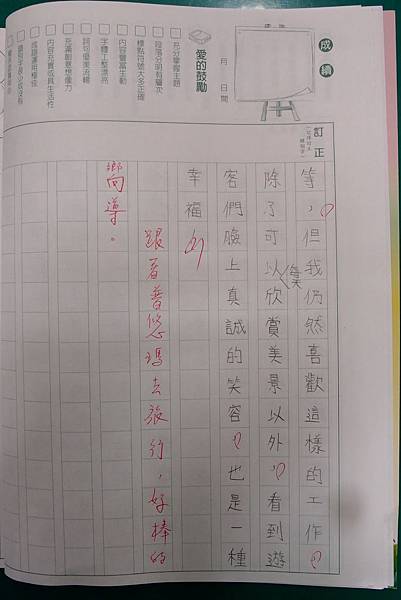 成績
月 日 閱
愛的鼓勵
充分掌握主題
段落分明有層次
標點符號大多正確
內容豐富生動
字體工整漂亮
詞句優美流暢
充滿創意想像力
內容充實或具生活性
成語運用極佳
訂正
等，但我仍然喜歡這樣的工作。
除了可以每天欣賞美景以外，看到遊
客們臉上真誠的笑容，也是一種
幸福
跟著普悠瑪去旅行，好棒的
嚮導。